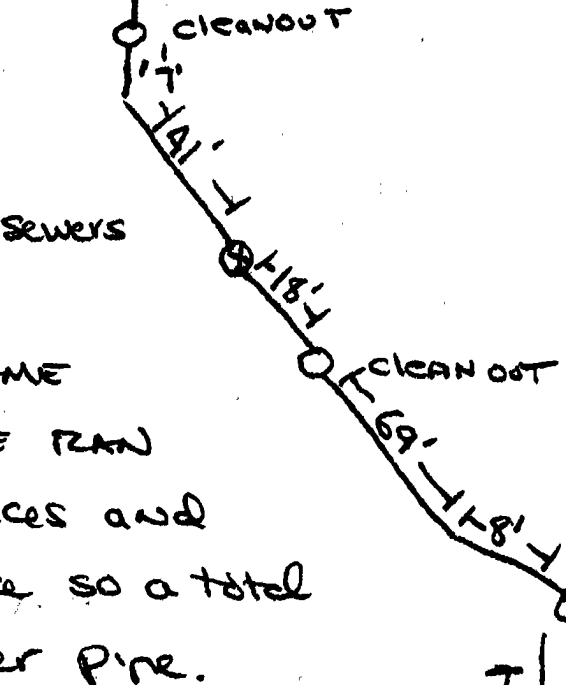 cleanout
7'
41'
sewers
18'
CleAN OUT
ME
E RAN
69'
ces and
8'
e so a total
er pipe.